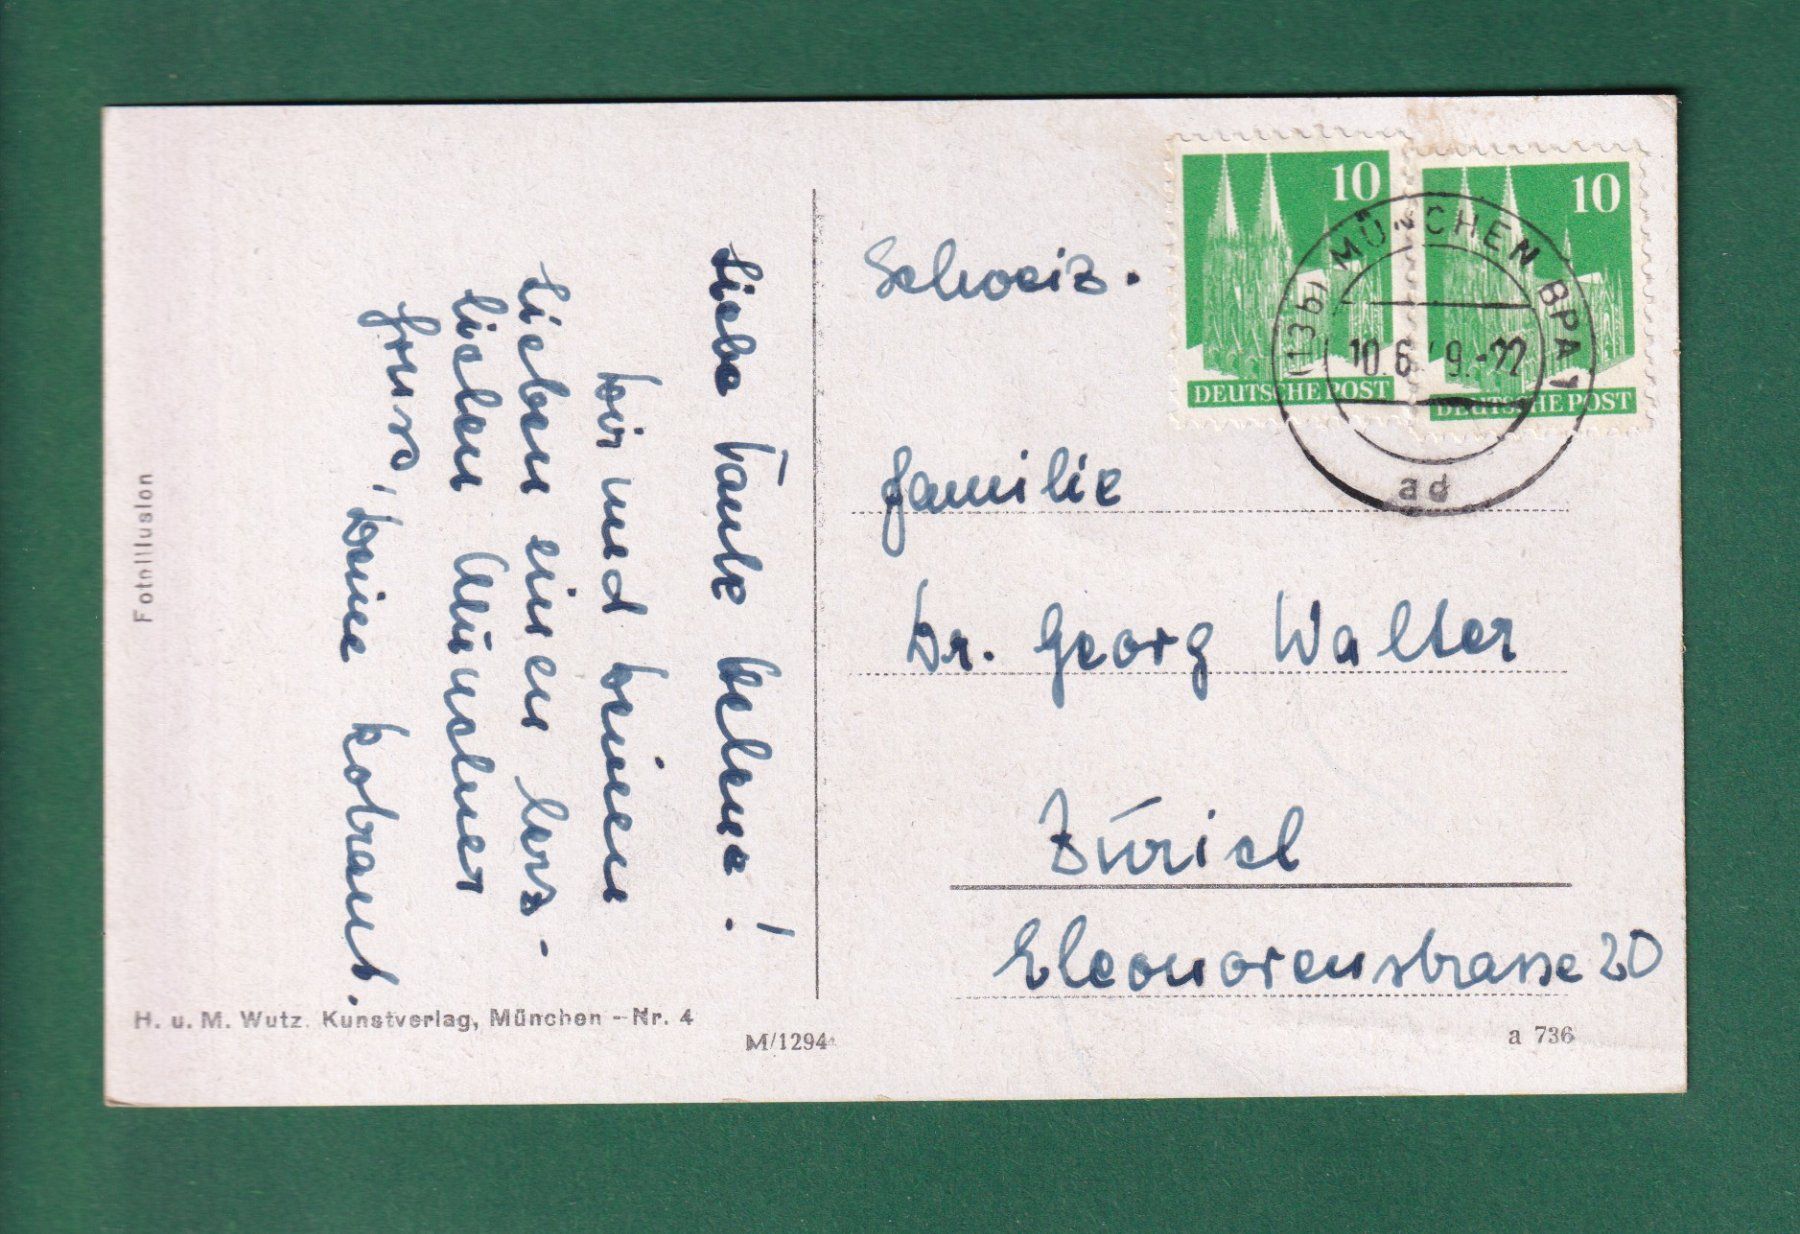 Fotoillusion
Liebe Tante Helene!
Dir und Deinen
Lieben einen herz-
lichen Münchner
Gruss, Deine
H. u. M. Wutz. Kunstverlag, München – Nr. 4
M/1294
10
DEUTSCHE POST
10
DEUTSCHE POST
(13b) MÜNCHEN BPA 1
10.6.49.-22
ad
Schweiz.
Familie
Dr. Georg Walter
Zürich
Eleonorenstrasse 20
a 736